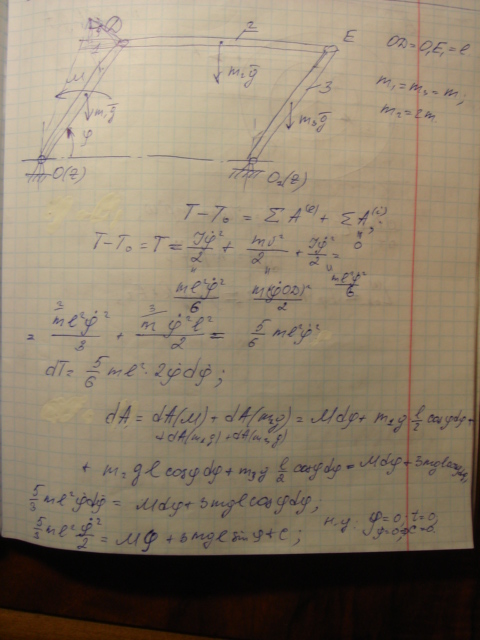 D
2
E
OD = O₁E₁ = l
M
m₁g̅
m₂g̅
3
m₃g̅
m₁ = m₃ = m;
m₂ = 2m.
φ
O(z)
O₂(z)
T - T₀ = ΣA⁽ᵉ⁾ + ΣA⁽ⁱ⁾;
T - T₀ = T = Jφ̇²/2 + mv²/2 + Jφ̇²/2 =
0
ml²φ̇²/6 m(φ̇OD)²/2 ml²φ̇²/6
= ml²φ̇²/3 + m φ̇²l²/2 = 5/6 ml²φ̇²
dT = 5/6 ml² · 2φ̇dφ̇;
dA = dA(M) + dA(m₁g) = Mdφ + m₁g · l/2 cosφdφ +
+ dA(m₂g) + dA(m₃g)
+ m₂gl cosφdφ + m₃g l/2 cosφdφ = Mdφ + 3mgl cosφdφ
5/3 ml²φ̇dφ̇ = Mdφ + 3mgl cosφdφ;
5/3 ml² φ̇²/2 = Mφ + 3mgl sinφ + C;
н.у: φ=0, t=0,
φ̇=0, C=0.